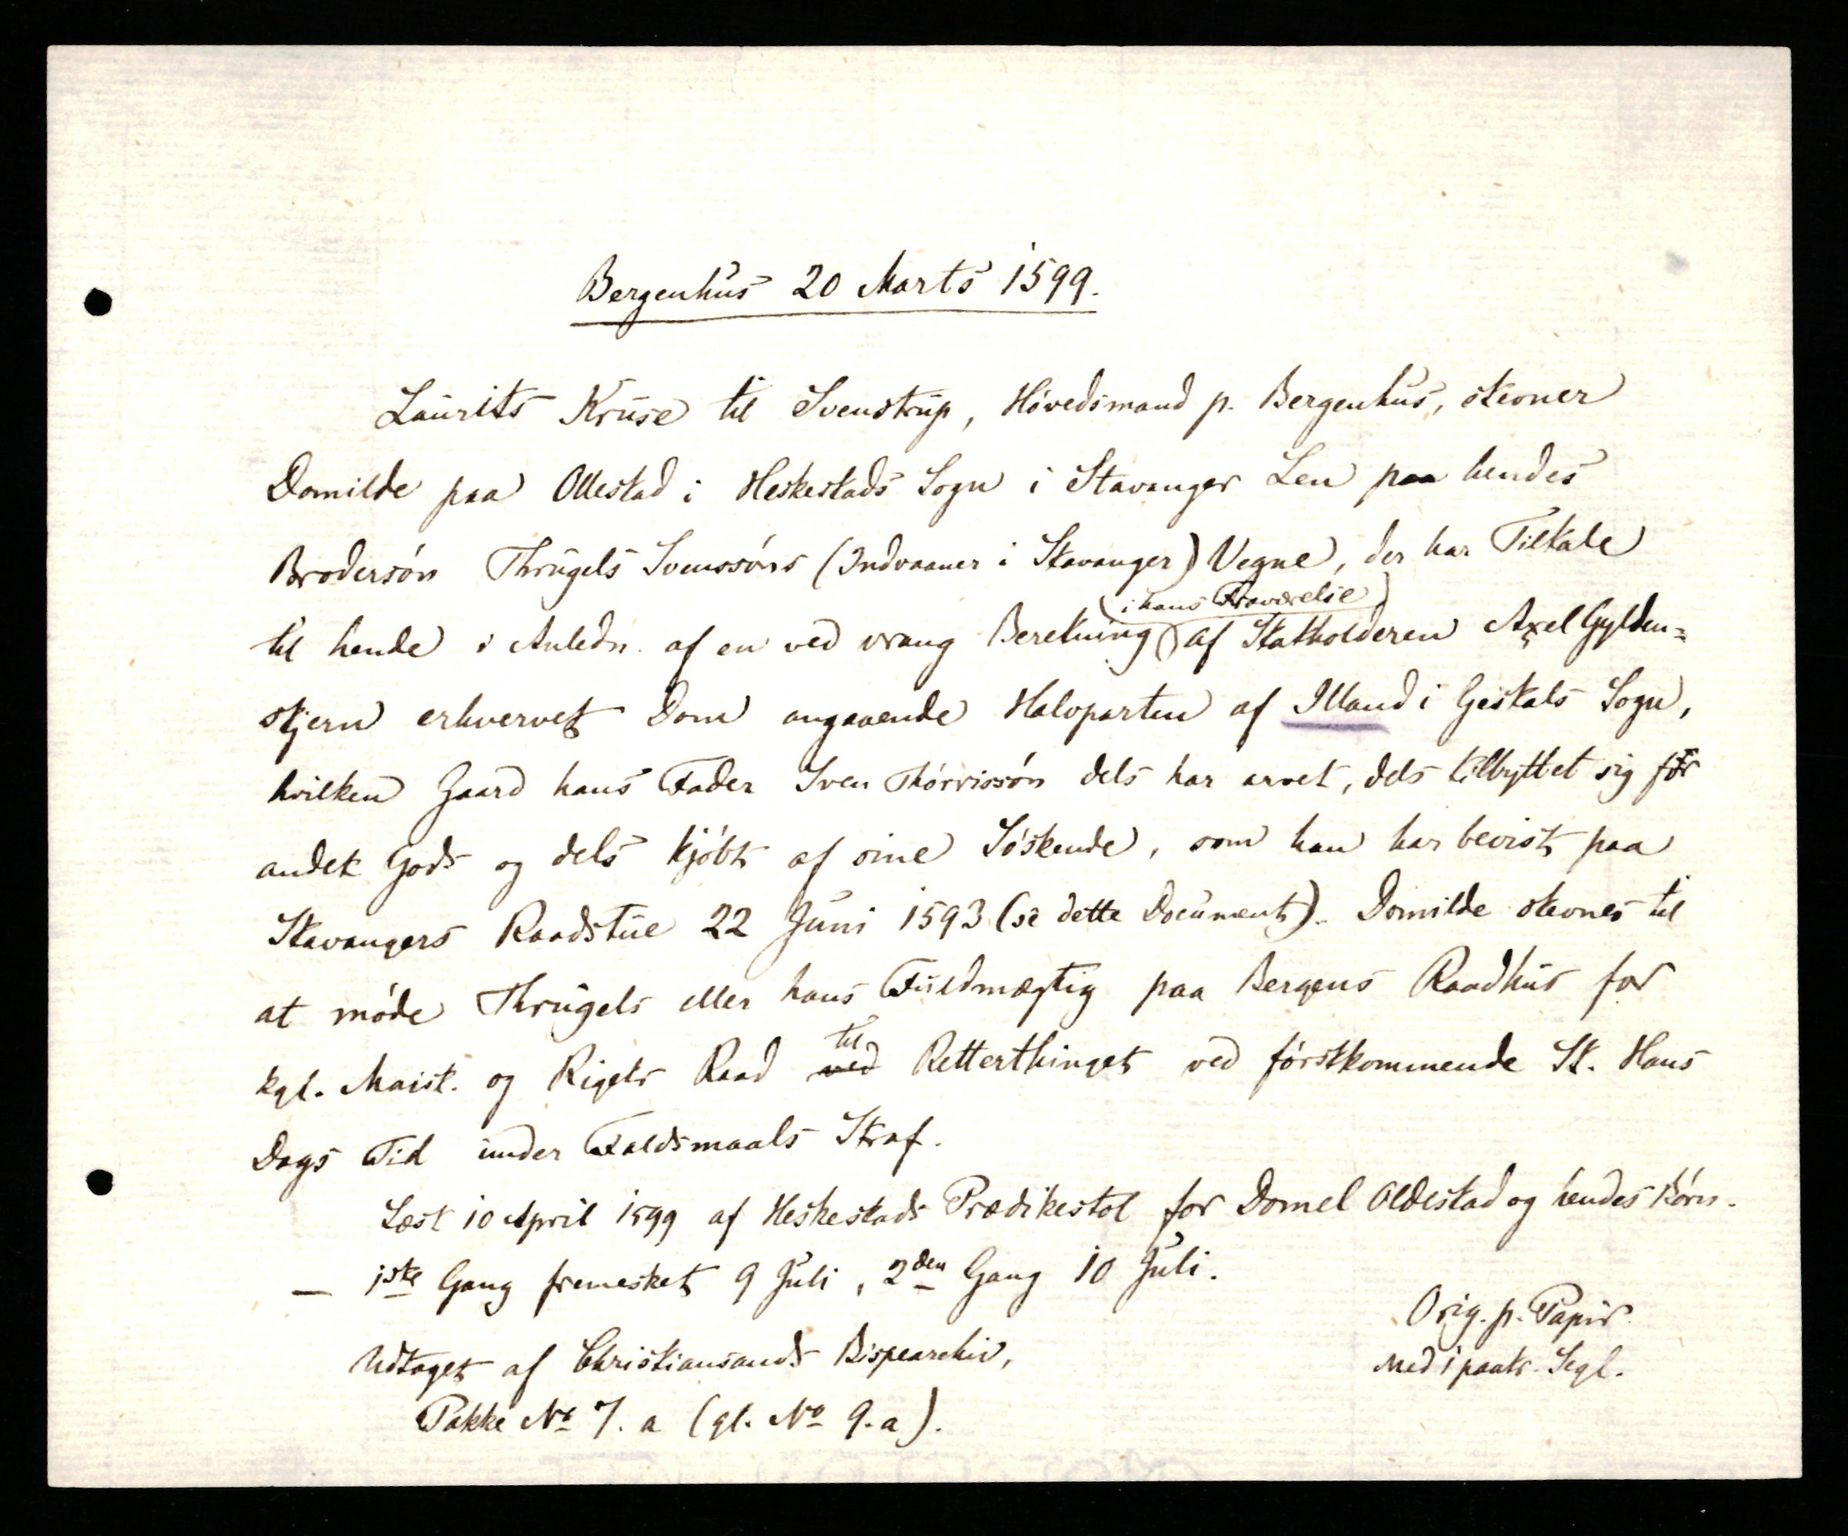 Bergenhus 20 Marts 1599.
Laurits Kruse til Svenstrup, Hövedsmand p. Bergenhus, stevner
Domilde paa Ollestad i Heskestads Sogn i Stavanger Len paa hendes
Brodersön Thrugels Svenssöns (Indvaaner i Stavanger) Vegne, der har Tiltale
(i hans Fraværelse)
til hende i Anledn. af en ved vrang Beretning af Statholderen Axel Gylden-
stjern erhvervet Dom angaaende Halvparten af Illand i Gestals Sogn,
hvilken Gaard hans Fader Sven Thörrissön dels har arvet, dels tilbyttet sig for
andet Gods og dels kjöbt af sine Söskende, som han har bevist paa
Stavangers Raadstue 22 Juni 1593 (se dette Document). Domilde stevnes til
at möde Thrugels eller hans Fuldmægtig paa Bergens Raadhus for
til
kgl. Maist. og Rigets Raad ved Retterthinget ved förstkommende St. Hans
Dags Tid under Faldsmaals Straf.
Læst 10 April 1599 af Heskestads Prædikestol for Domel Oldestad og hendes Börn.
— 1ste Gang fremesket 9 Juli, 2den Gang 10 Juli.
Orig. p. Papir
Udtaget af Christiansands Bispearchiv,
med 1 paatr. Segl.
Pakke No 7. a (gl. No 9. a).